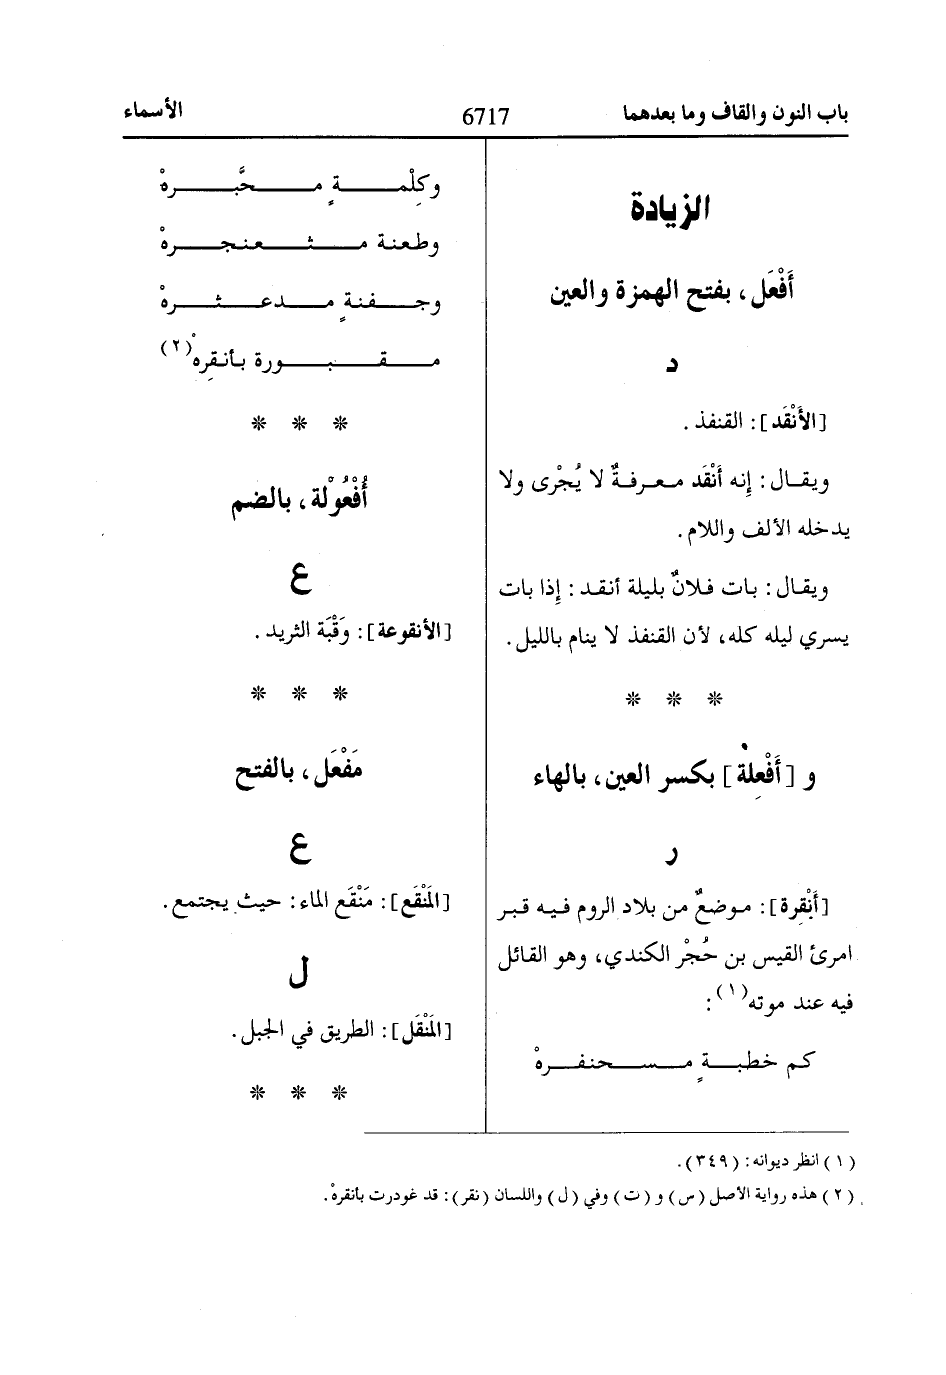 باب النون والقاف وما بعدهما
6717
الأسماء
الزيادة
أَفْعَل، بفتح الهمزة والعين
د
[الأَنْقَد]: القنفذ.
ويقال: إِنه أَنْقَد معرفةٌ لا يُجْرى ولا
يدخله الألف واللام.
ويقال: بات فلانٌ بليلة أنقد: إِذا بات
يسري ليله كله، لأن القنفذ لا ينام بالليل.
* * *
و [أَفْعِلة] بكسر العين، بالهاء
ر
[أَنْقِرة]: موضعٌ من بلاد الروم فيه قبر
امرئ القيس بن حُجْر الكندي، وهو القائل
فيه عند موته(١):
كم خطبةٍ مسحنفرهْ
وكلْمةٍ محبَّرهْ
وطعنة مثعنجرهْ
وجفنةٍ مدعثرهْ
مقبورة بأنقِرهْ(٢)
* * *
أُفْعُوْلة، بالضم
ع
[الأنقوعة]: وَقْبَة الثريد.
* * *
مَفْعَل، بالفتح
ع
[المَنْقَع]: مَنْقَع الماء: حيث يجتمع.
ل
[المَنْقَل]: الطريق في الجبل.
* * *
(١) انظر ديوانه: (٣٤٩).
(٢) هذه رواية الأصل (س) و (ت) وفي (ل) واللسان (نقر): قد غودرت بأنقرهْ.